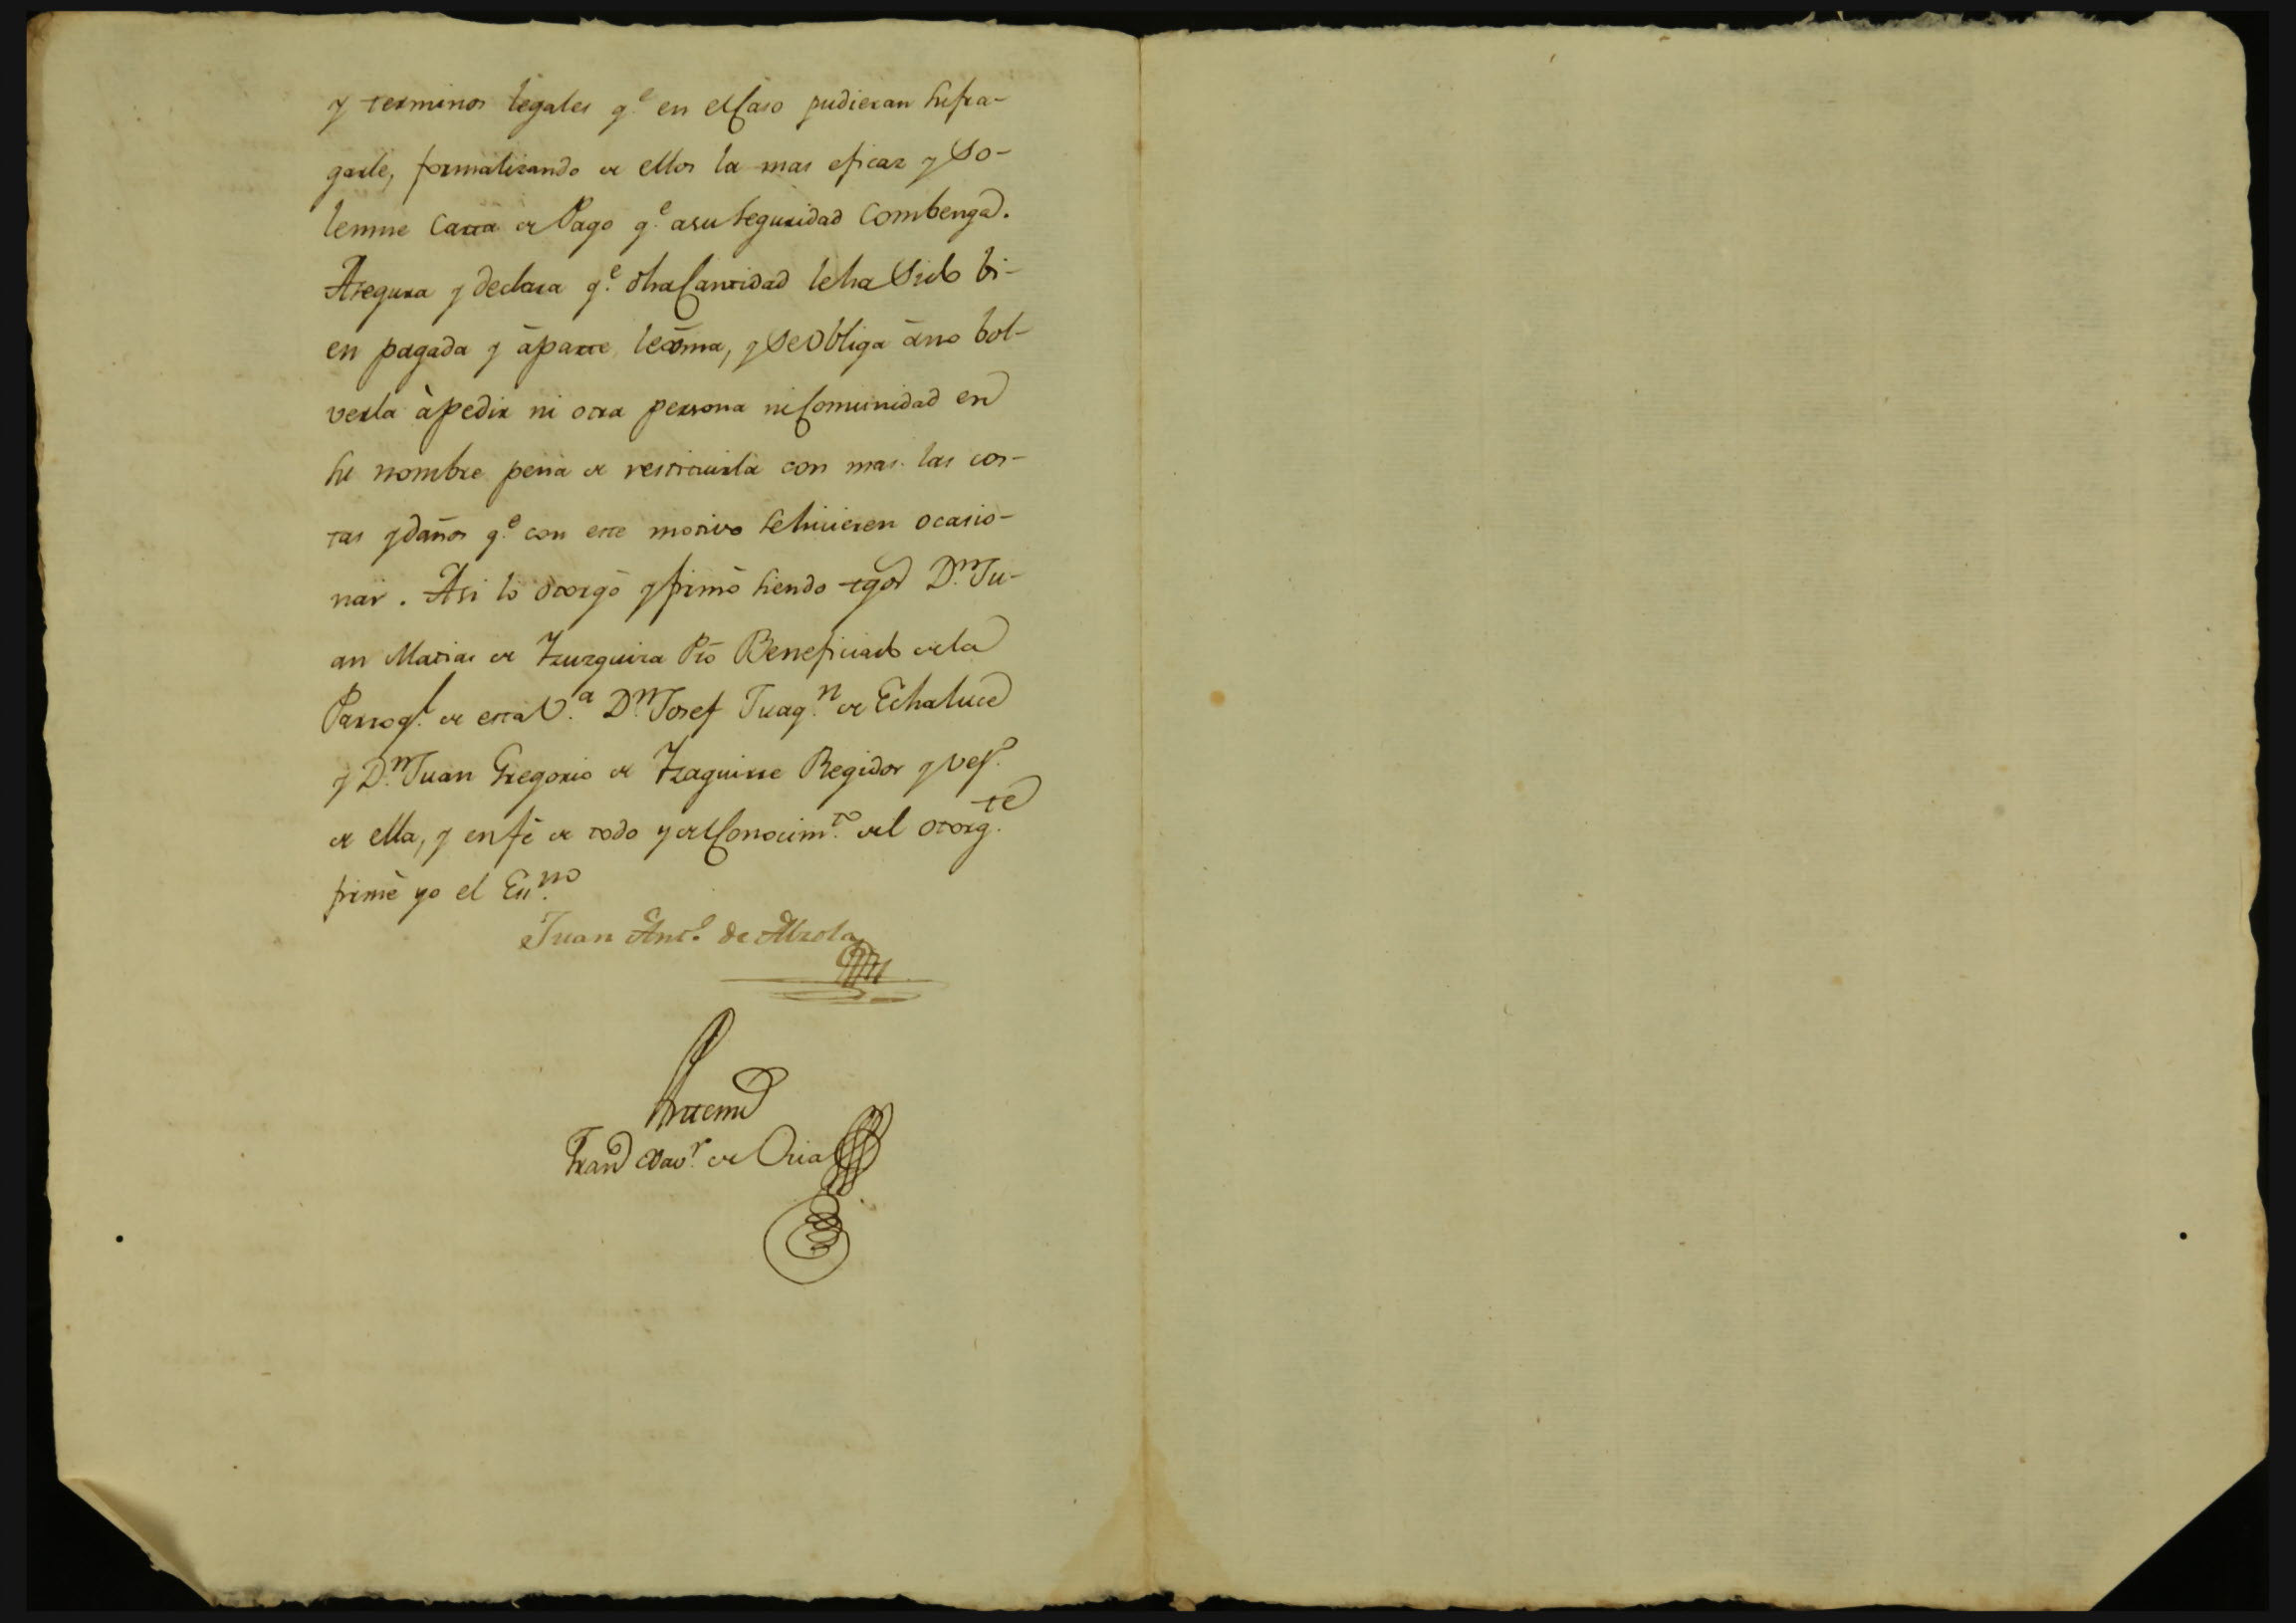 y terminos legales q.e en el Caso pudieran sufra-
garle, formalizando de ellos la mas eficaz y So-
lemne Carta de Pago q.e a su Seguridad Combenga.
Asegura y declara q.e dha Cantidad le ha Sido bi-
en pagada y à parte lexma, y Se Obliga à no bol-
verla à pedir ni otra persona ni Comunidad en
su nombre pena de restituirla con mas las cos-
tas y daños q.e con este motivo se hicieren ocasio-
nar. Asi lo Otorgò y firmò siendo tgos D.n Ju-
an Matias de Yzurquiza Pro Beneficiado de la
Parroq.l de esta V.a D.n Josef Juaq.n de Echaluce
y D.n Juan Gregorio de Yzaguirre Regidor y Vez.o
de ella, y en fè de todo y de el Conocim.to del otorg.te
firmè yo el Ess.no
Juan Ant.o de Alzola
Ante mi
Fran.co Xav.r de Oria